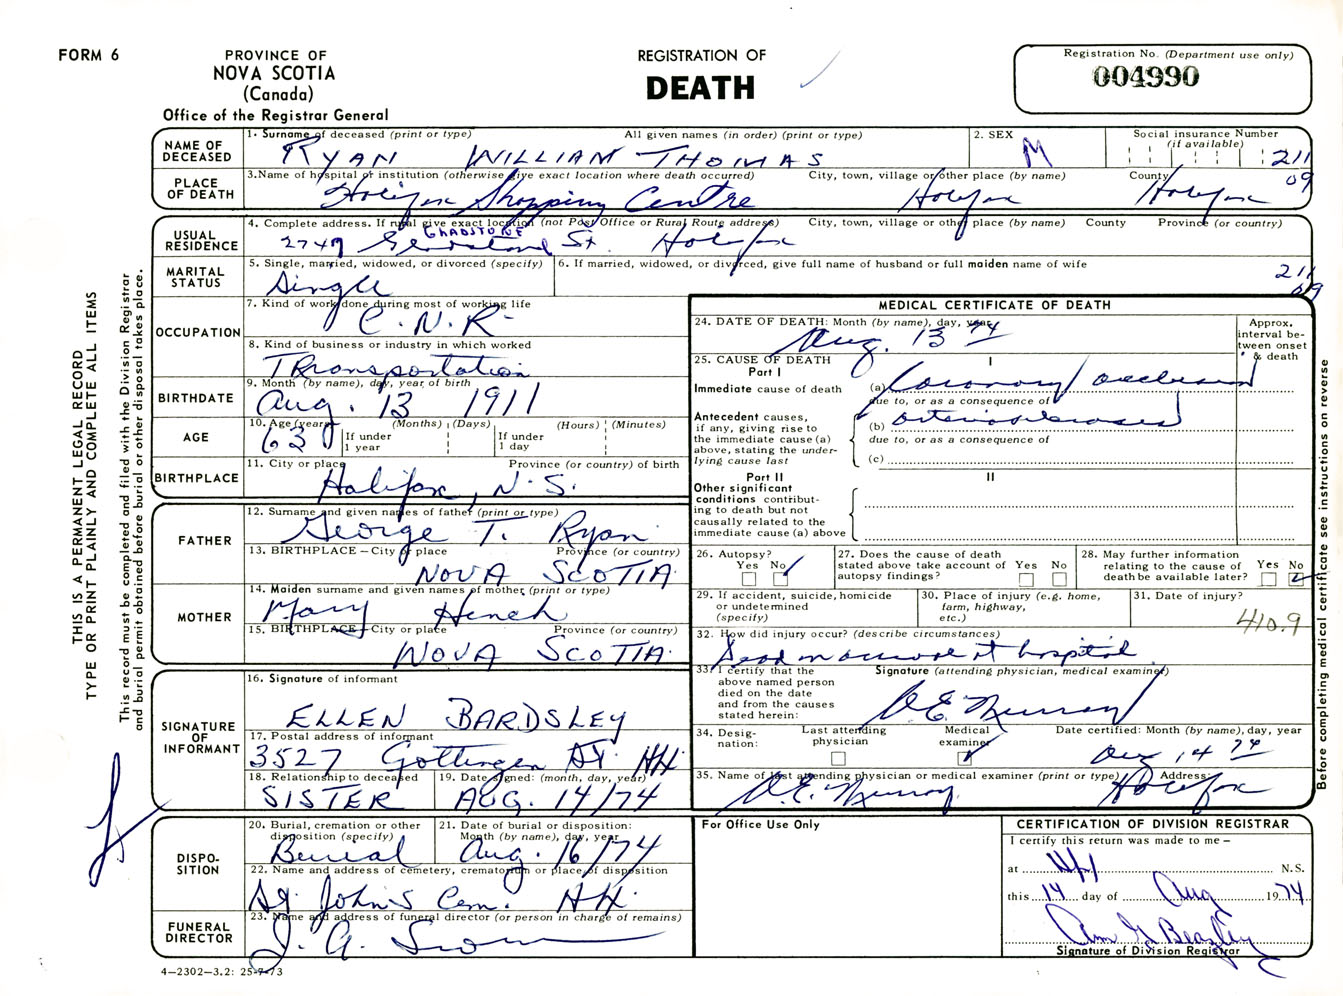 FORM 6
PROVINCE OF
NOVA SCOTIA
(Canada)
Office of the Registrar General
REGISTRATION OF
DEATH
Registration No. (Department use only)
004990
THIS IS A PERMANENT LEGAL RECORD
TYPE OR PRINT PLAINLY AND COMPLETE ALL ITEMS
This record must be completed and filed with the Division Registrar
and burial permit obtained before burial or other disposal takes place.
NAME OF DECEASED
1. Surname of deceased (print or type) All given names (in order) (print or type)
RYAN WILLIAM THOMAS
2. SEX
M
Social insurance Number
(if available)
211
09
PLACE OF DEATH
3. Name of hospital or institution (otherwise give exact location where death occurred) City, town, village or other place (by name) County
Halifax Shopping Centre Halifax Halifax
USUAL RESIDENCE
4. Complete address. If rural give exact location (not Post Office or Rural Route address) City, town, village or other place (by name) County Province (or country)
GLADSTONE
2747 St. Halifax
MARITAL STATUS
5. Single, married, widowed, or divorced (specify)
Single
6. If married, widowed, or divorced, give full name of husband or full maiden name of wife
211
09
OCCUPATION
7. Kind of work done during most of working life
C.N.R.
8. Kind of business or industry in which worked
Transportation
BIRTHDATE
9. Month (by name), day, year of birth
Aug. 13 1911
AGE
10. Age (years) (Months) (Days) (Hours) (Minutes)
63 If under 1 year If under 1 day
BIRTHPLACE
11. City or place Province (or country) of birth
Halifax, N.S.
FATHER
12. Surname and given names of father (print or type)
George T. Ryan
13. BIRTHPLACE – City or place Province (or country)
NOVA SCOTIA
MOTHER
14. Maiden surname and given names of mother (print or type)
Mary
15. BIRTHPLACE – City or place Province (or country)
NOVA SCOTIA
SIGNATURE OF INFORMANT
16. Signature of informant
ELLEN BARDSLEY
17. Postal address of informant
3527 Gottingen St. Hfx.
18. Relationship to deceased
SISTER
19. Date signed: (month, day, year)
AUG. 14/74
DISPO-
SITION
20. Burial, cremation or other disposition (specify)
Burial
21. Date of burial or disposition: Month (by name), day, year
Aug. 16/74
22. Name and address of cemetery, crematorium or place of disposition
St. John's Cem. Hfx.
FUNERAL DIRECTOR
23. Name and address of funeral director (or person in charge of remains)
J. A. Snow
4–2302–3.2: 25-7-73
MEDICAL CERTIFICATE OF DEATH
24. DATE OF DEATH: Month (by name), day, year
Aug. 13 74
Approx. interval between onset & death
25. CAUSE OF DEATH
Part I
I
Immediate cause of death (a) Coronary occlusion
due to, or as a consequence of
Antecedent causes, if any, giving rise to the immediate cause (a) above, stating the underlying cause last
(b) arteriosclerosis
due to, or as a consequence of
(c)
Part II
II
Other significant conditions contributing to death but not causally related to the immediate cause (a) above
26. Autopsy? Yes No
27. Does the cause of death stated above take account of autopsy findings? Yes No
28. May further information relating to the cause of death be available later? Yes No
29. If accident, suicide, homicide or undetermined (specify)
30. Place of injury (e.g. home, farm, highway, etc.)
31. Date of injury?
410.9
32. How did injury occur? (describe circumstances)
Dead on arrival at hospital
33. I certify that the above named person died on the date and from the causes stated herein:
Signature (attending physician, medical examiner)
Murray
34. Designation: Last attending physician Medical examiner
Date certified: Month (by name), day, year
Aug 14 74
35. Name of last attending physician or medical examiner (print or type) Address:
Murray Halifax
Before completing medical certificate see instructions on reverse
For Office Use Only
CERTIFICATION OF DIVISION REGISTRAR
I certify this return was made to me –
at Hfx N.S.
this 14 day of Aug 1974
Signature of Division Registrar